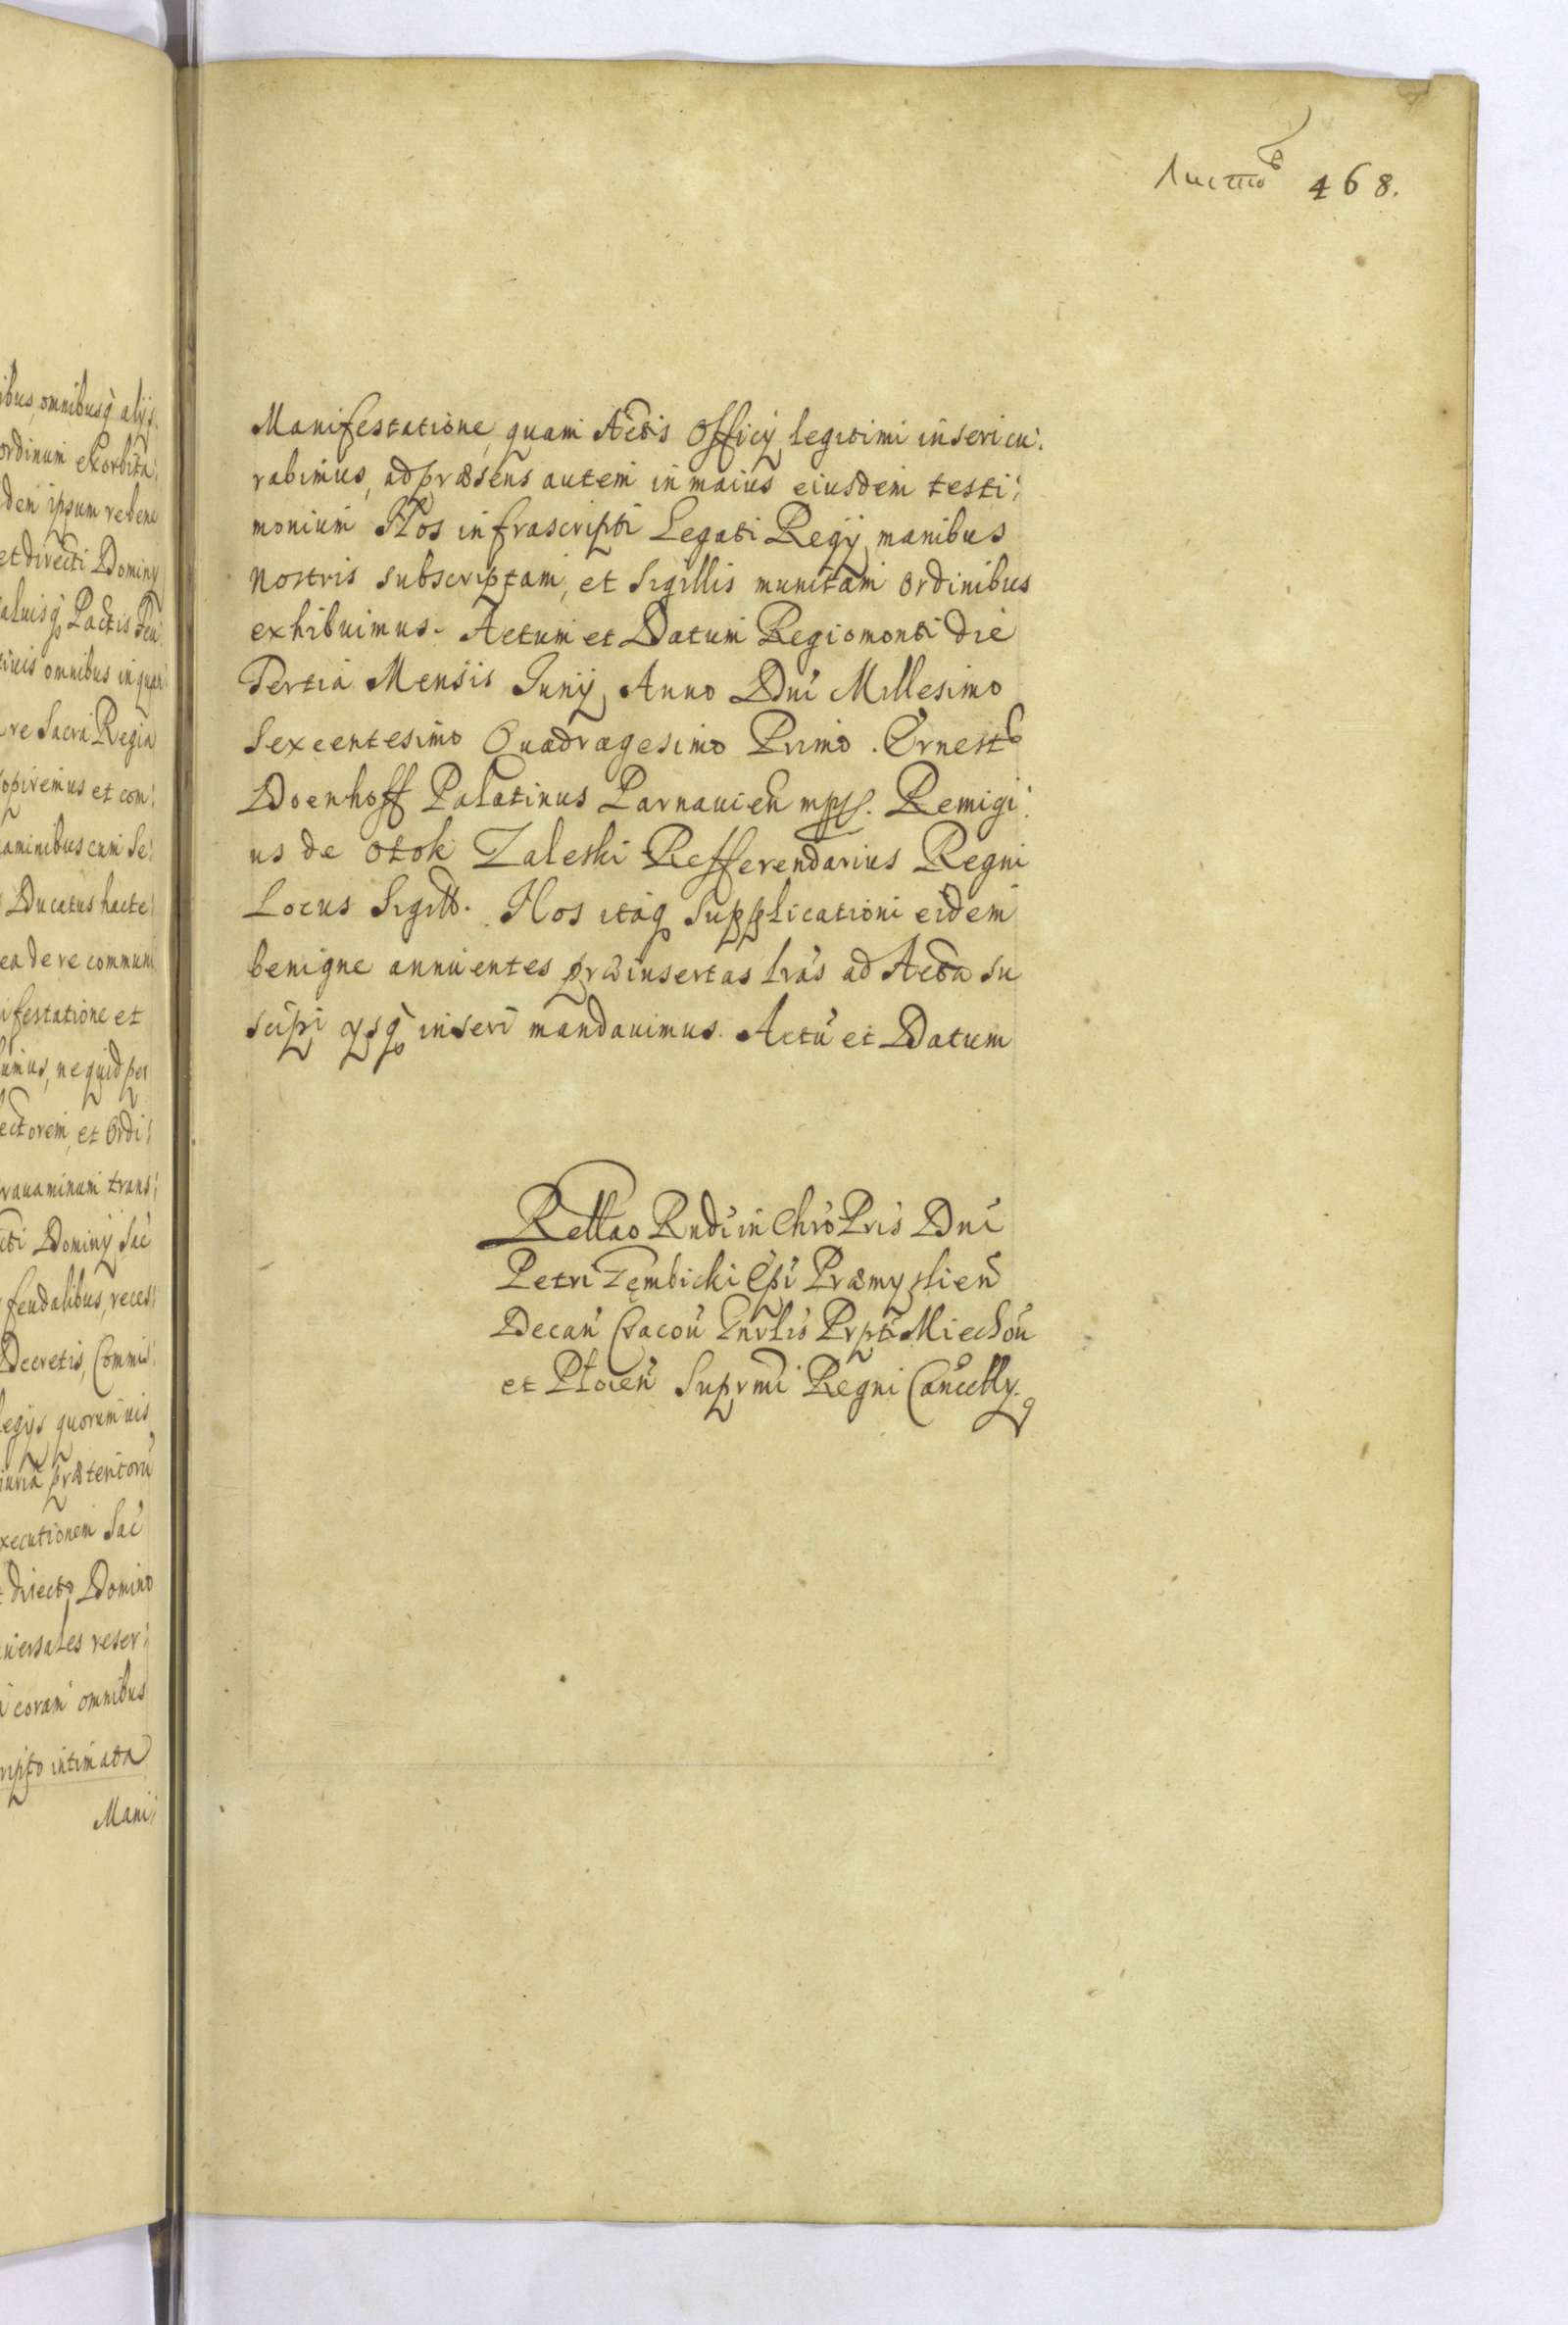 ибus, omnibusq alys.
ordinum exorbita:
dem ipsum rebene
et directi Dominy
aluisq Pactis Feu:
tiuis omnibus in quan
re Sacra Regia
sopiremus et com:
aminibus cum Se:
Ducatus hacte
ea de re communi
ifestatione et
umus, ne quid per
ectorem, et Ordi:
rauaminum trans:
cti Dominy Sac
feudalibus, reces:
Decretis, Commis:
legys quorumuis
iuria prætentoru
xecutionem Sac
directo Domino
iuersales reser:
coram omnibus
ripto intimata
Mani:
Листов 468.
Manifestatione, quam Actis Officy legitimi inseri cu:
rabimus, ad præsens autem in maius eiusdem testi:
monium Nos infrascripti Legati Regy manibus
nostris subscriptam, et Sigillis munitam Ordinibus
exhibuimus. Actum et Datum Regiomonti die
Tertia Mensis Juny, Anno Dni Millesimo
Sexcentesimo Quadragesimo Primo. Ernest9
Doenhoff Palatinus Parnauien mpp. Remigi:
us de Otok Zaleski Refferendarius Regni
Locus Sigill. Nos itaq supplicationi eidem
benigne annuentes præinsertas lras ad Acta su
scipi ysq inseri mandauimus. Actu et Datum
Rellao Rndi in Chro Pris Dni
Petri Gembicki Epi Præmyslien
Decan Cracou Gnrlis Prpti Miechou
et Plocen Suprmi Regni Cancelly.